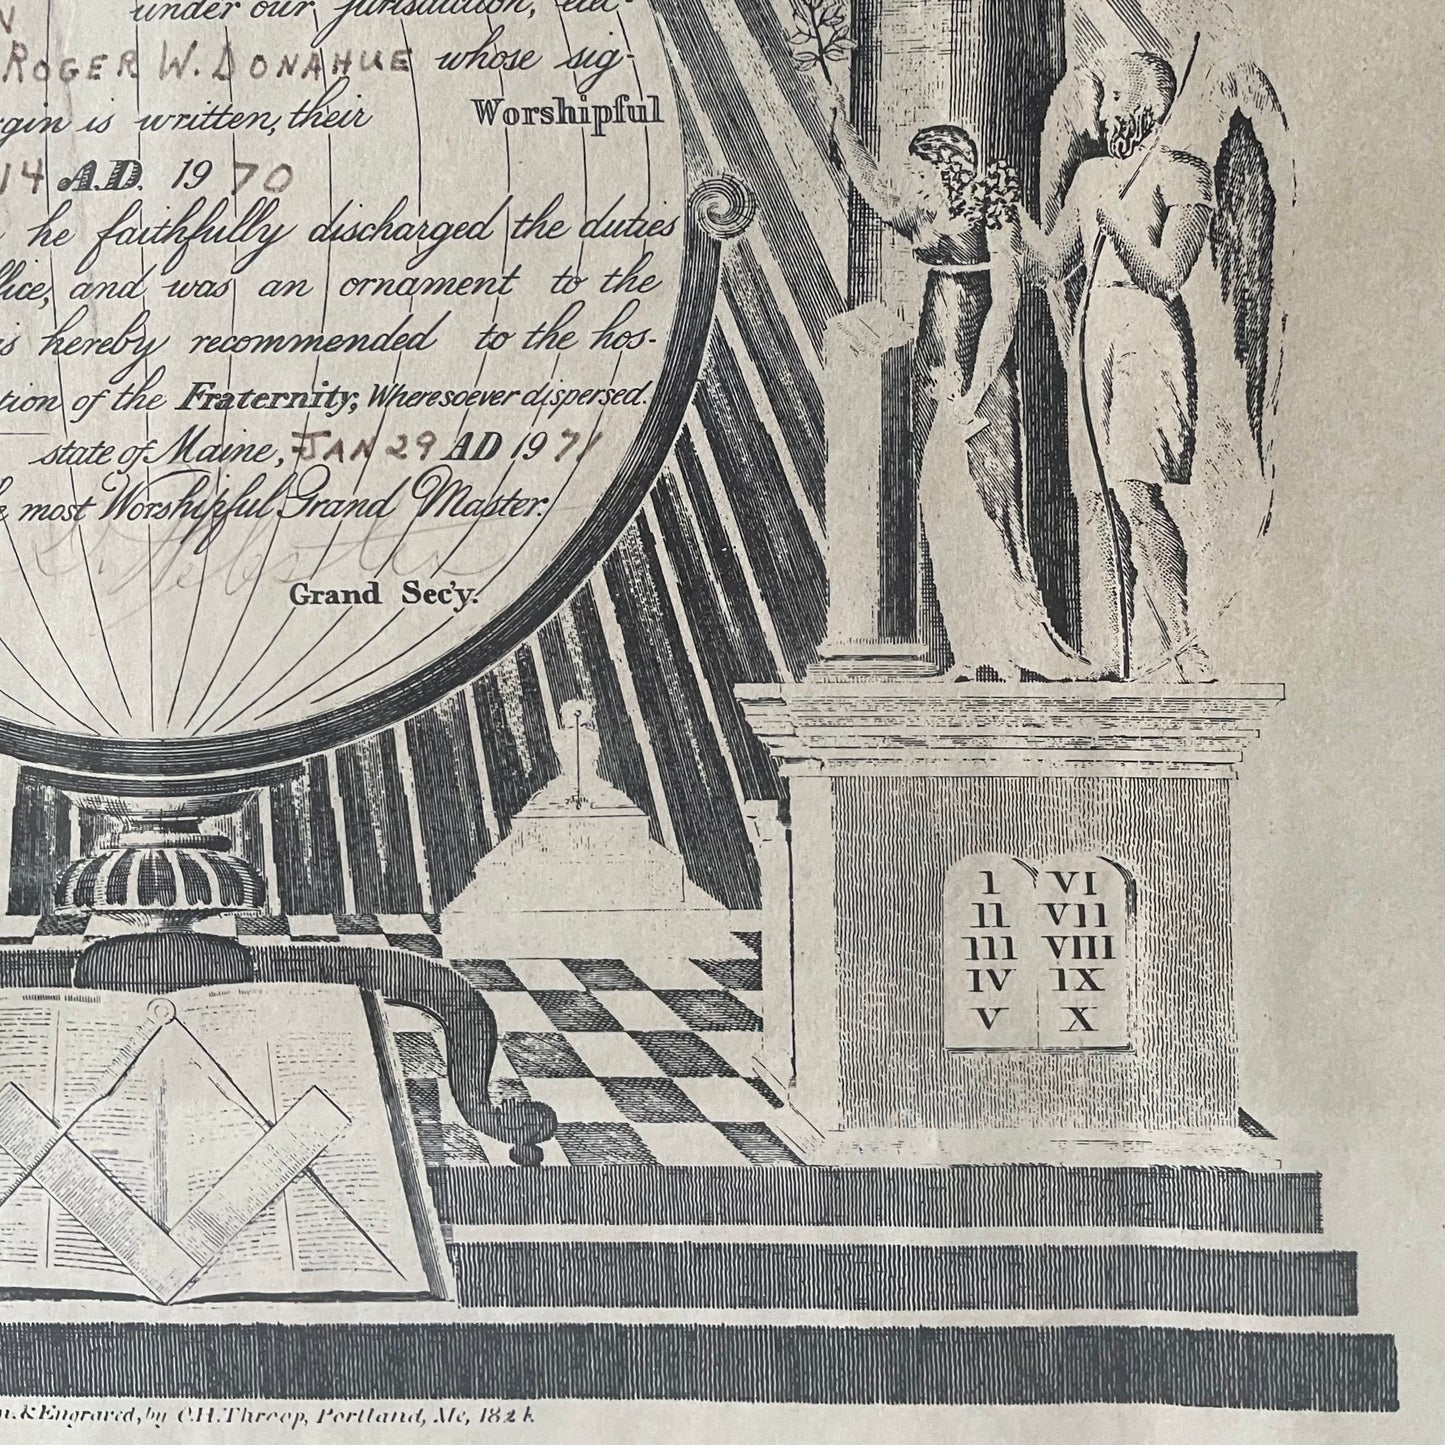 N under our jurisdiction, elec-
ROGER W. DONAHUE whose sig-
rgin is written, their Worshipful
14 A.D. 19 70
he faithfully discharged the duties
ffice, and was an ornament to the
is hereby recommended to the hos-
tion of the Fraternity, Wheresoever dispersed.
state of Maine, JAN 29 AD 19 71
e most Worshipful Grand Master.
Grand Sec'y.
I VI
II VII
III VIII
IV IX
V X
n. & Engraved, by C.H. Throop, Portland, Me,